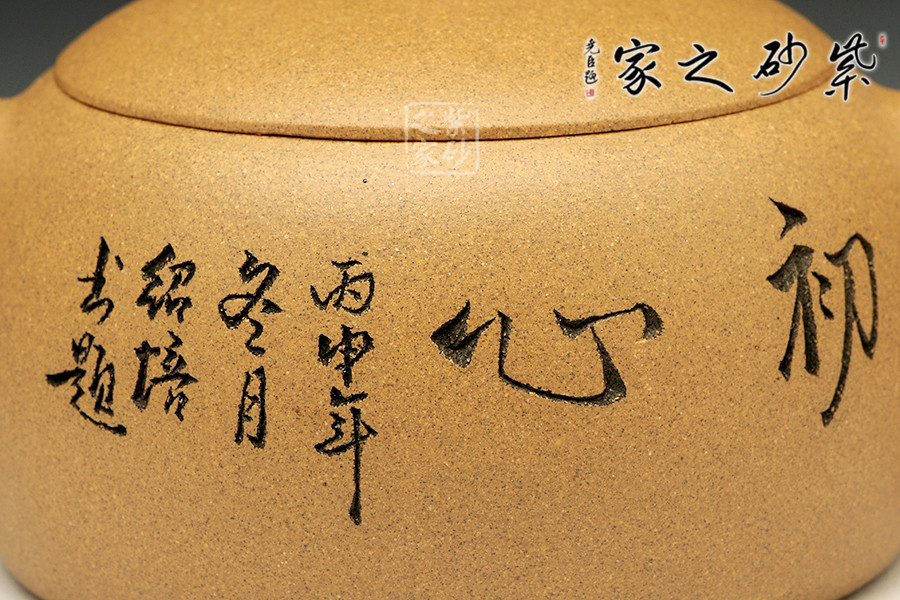 紫砂之家
尧臣题
紫砂之家
初心
丙申年
冬月
绍培
书题